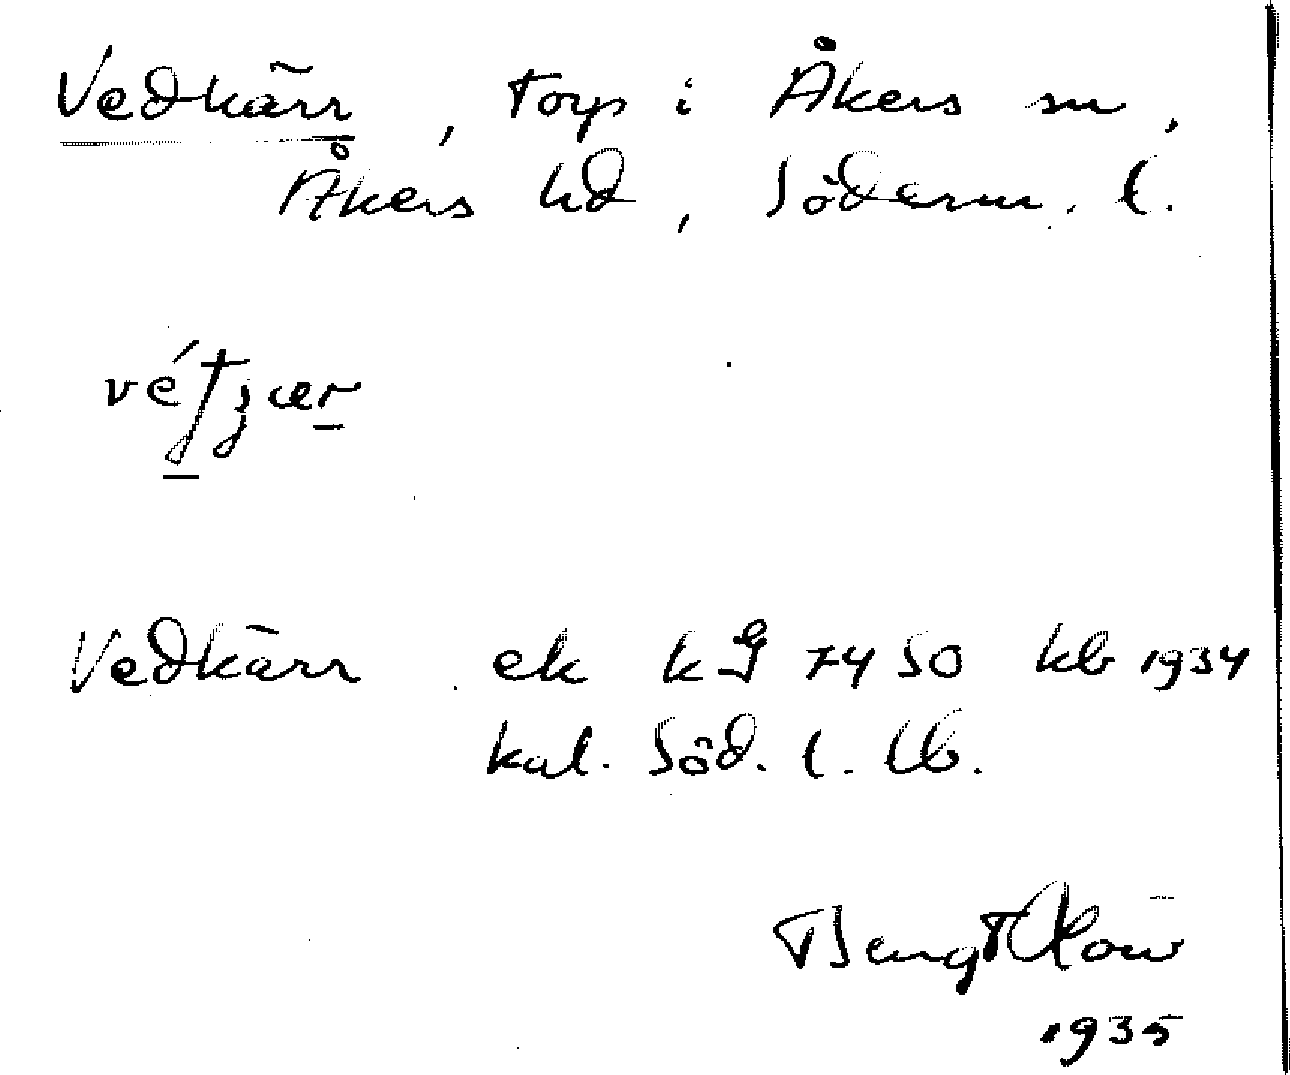 Vedkärr, torp i Åkers sn,
Åkers hd, Söderm. l.
Vedkärr ek kG 7450 kb 1934
kal. Söd. l. lb.
Bengt
1935